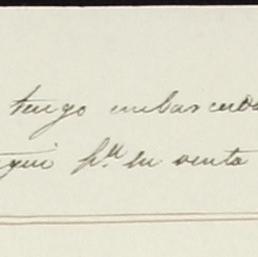 tengo embarcado
aqui pa su venta